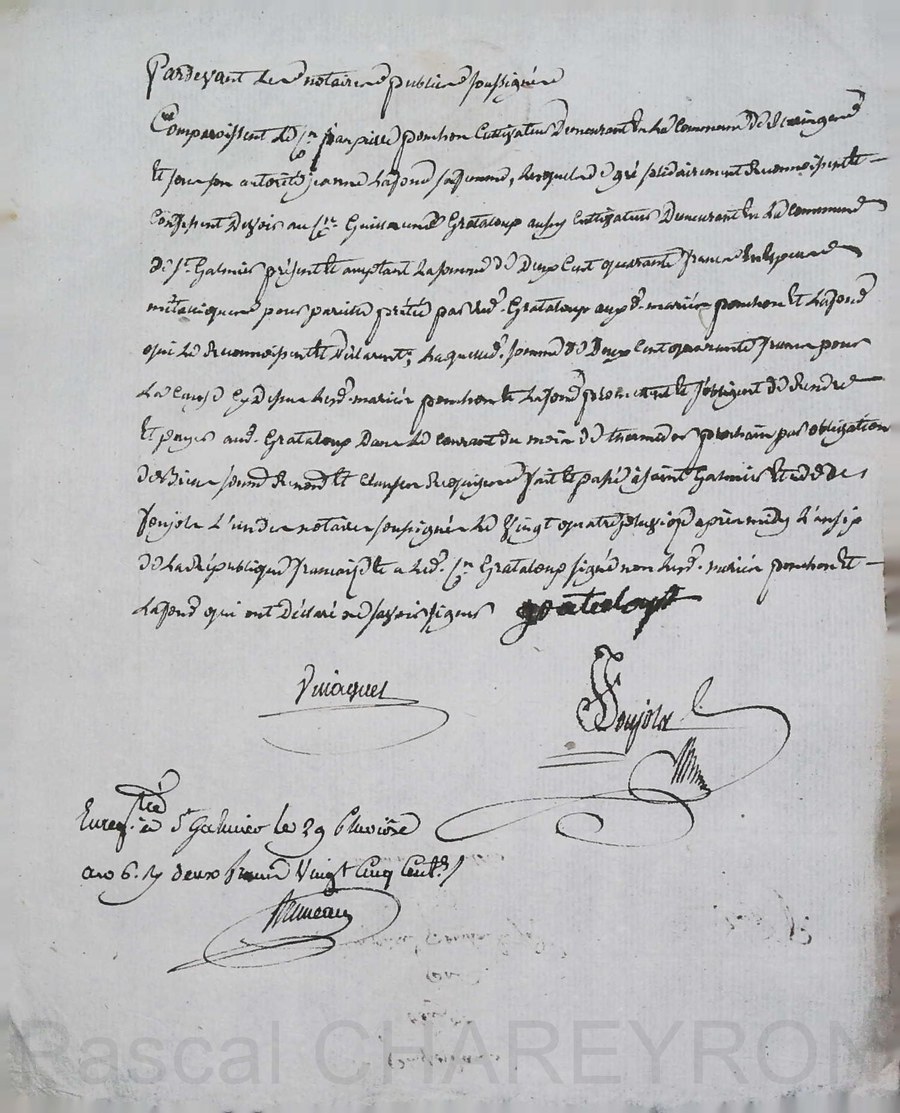 Pardevant les notaires publics soussignés
Comparoissent le Cen jean pierre ponchon Cultivateur Demeurant En La Commune de
Et sous son autorité jeanne Lafond sa femme, lesquels de gré solidairement Reconnoissent Et
Confessent Devoir au Cen Guillaume Grataloup aussy Cultivateur Demeurant En La Commune
de St Galmier présent Et acceptant La somme de Deux Cent quarante francs En Espèces
métaliques pour pareille prêtée par led. Grataloup auxd. mariés ponchon Et Lafond
qui Le Reconnoissent Et Déclarent, Laquelle somme de Deux Cent quarante francs pour
La Cause Cy dessus lesd. mariés ponchon Et Lafond promettent Et s'obligent de Rendre
Et payer aud. Grataloup Dans Le Courant du mois de thermidor prochain par obligation
de Biens Et Clauses Requises fait Et passé à saint Galmier Etude de
Poujola L'un des notaires soussignés Le Vingt quatre pluviose après midy L'an six
de La République française Et a led. Cen Grataloup signé non lesd. mariés ponchon Et
Lafond qui ont Déclaré ne savoir signer grataloup
Poujola
Enregistré à St Galmier le 29 Pluviôse
an 6. deux francs Vingt Cinq Cent.
Pascal CHAREYRON